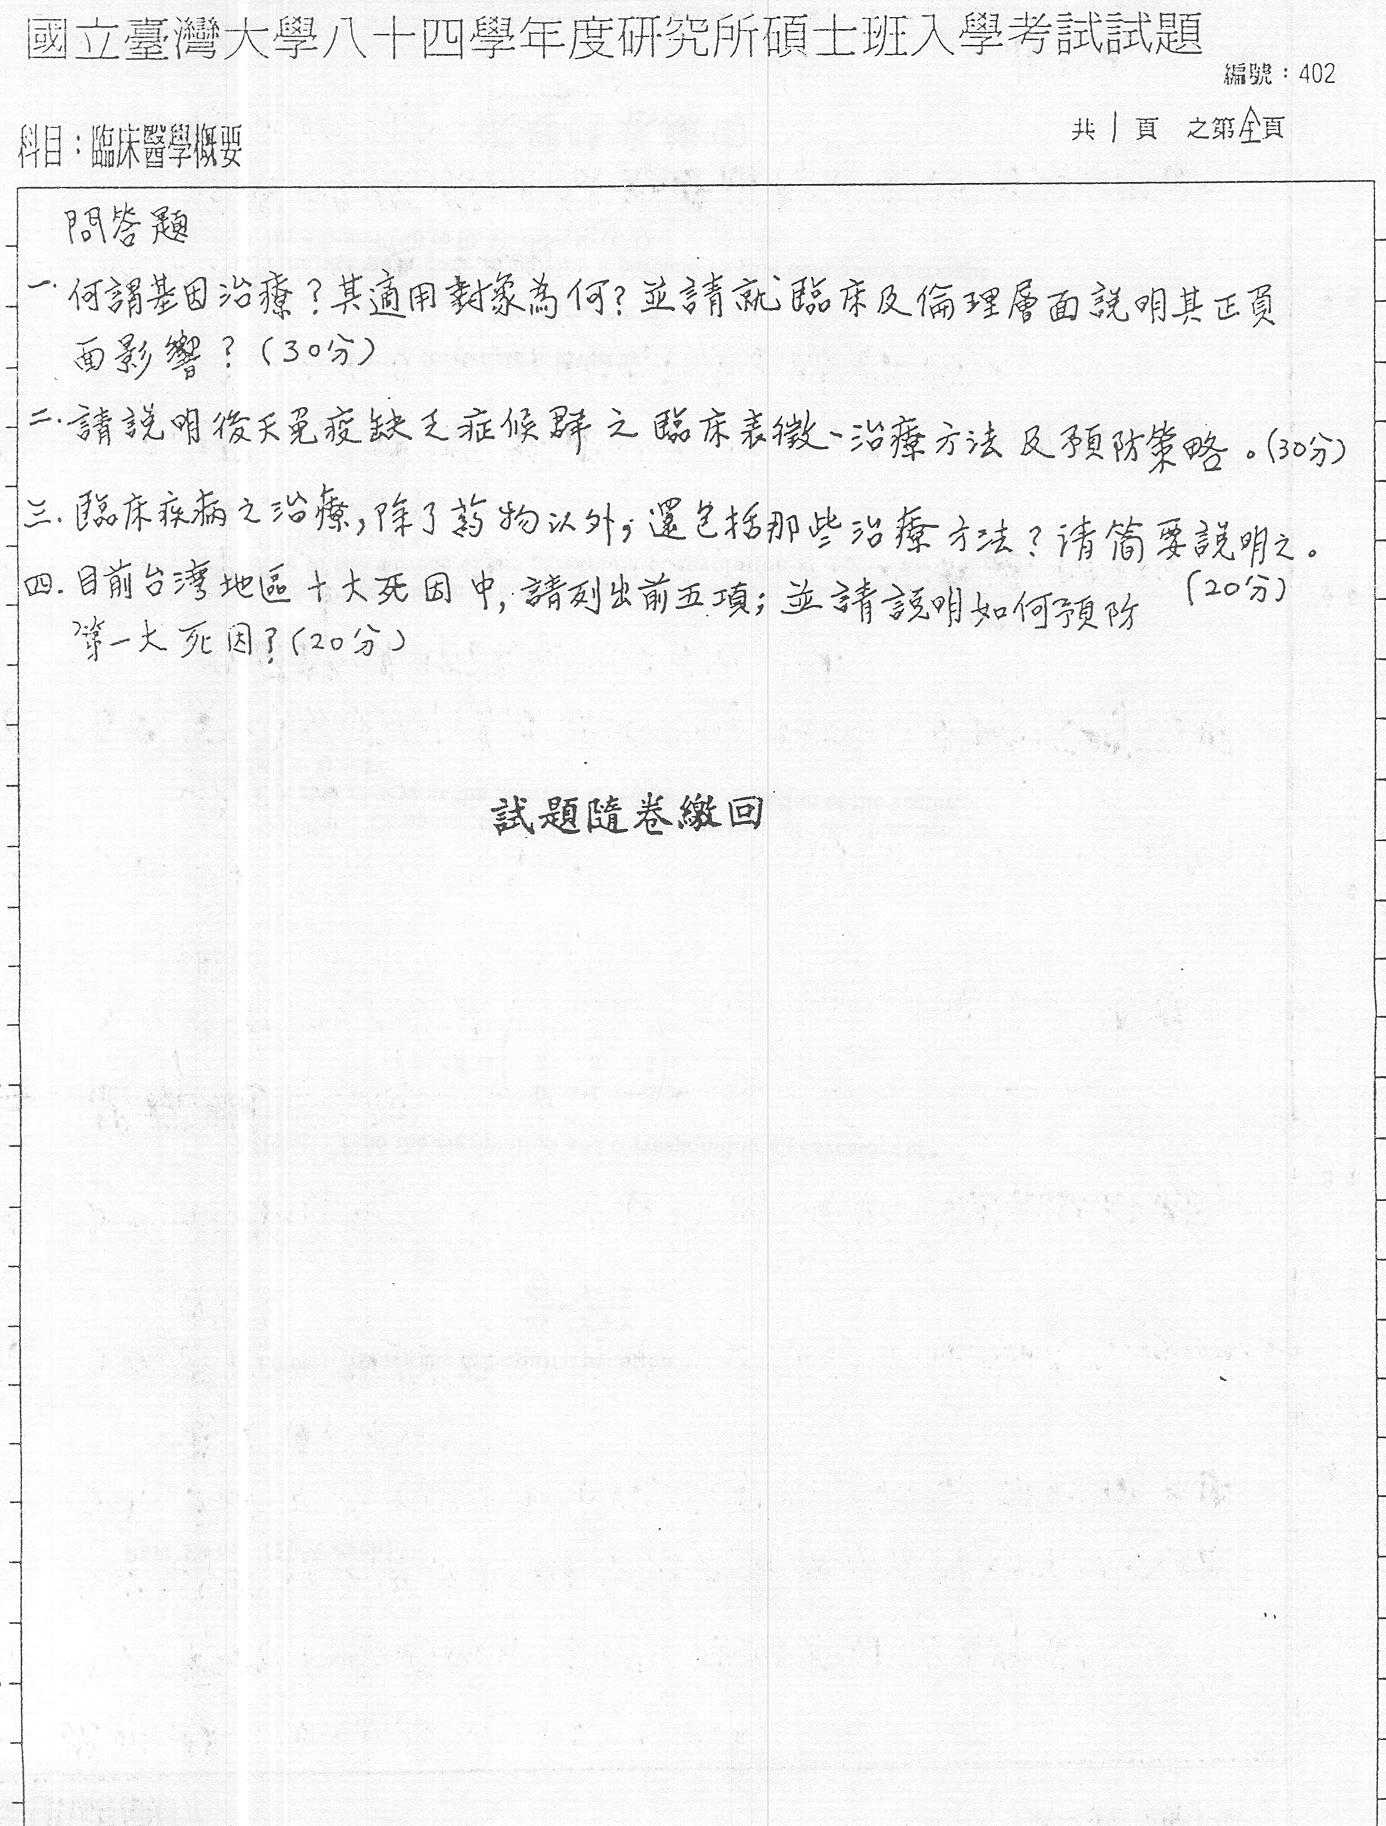 國立臺灣大學八十四學年度研究所碩士班入學考試試題
編號：402
科目：臨床醫學概要
共 1 頁 之第全頁
問答題
一. 何謂基因治療？其適用對象為何？並請就臨床及倫理層面說明其正負
面影響？（30分）
二. 請說明後天免疫缺乏症候群之臨床表徵、治療方法及預防策略。（30分）
三. 臨床疾病之治療，除了葯物以外，還包括那些治療方法？请簡要說明之。
（20分）
四. 目前台湾地區十大死因中，請列出前五項；並請說明如何預防
第一大死因？（20分）
試題隨卷繳回